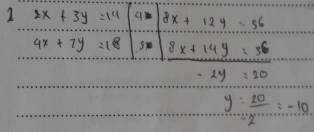 1 2x + 3y = 14 | 4× | 8x + 12y = 56
4x + 7y = 18 | 2× | 8x + 14y = 36
- 2y = 20
y = 20/-2 = -10